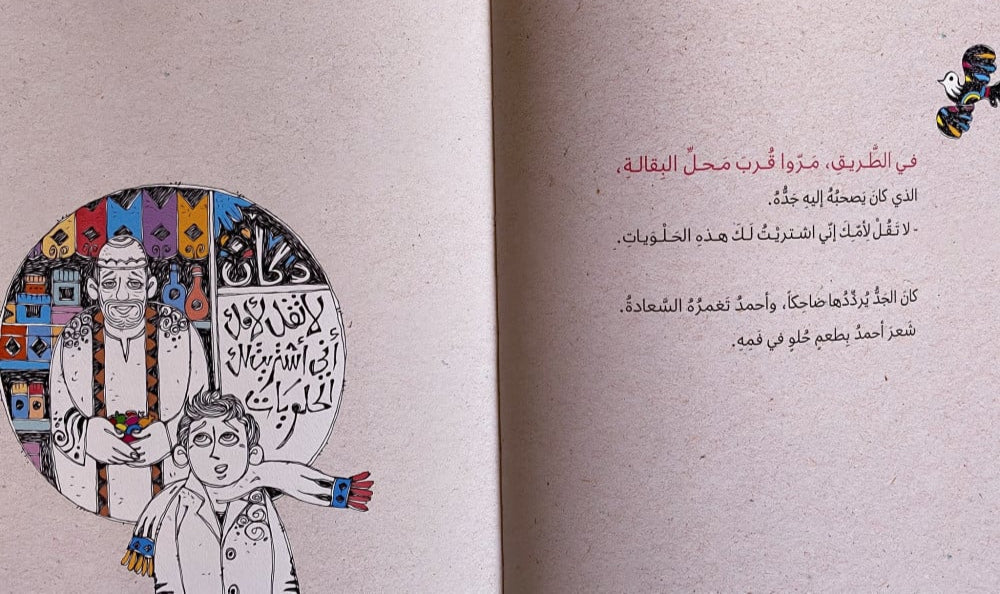 في الطَّريقِ، مَرّوا قُربَ مَحلِّ البِقالةِ،
الذي كانَ يَصحبُهُ إليهِ جَدُّهُ.
- لا تَقُلْ لأمّكَ إنّي اشتريْتُ لَكَ هذهِ الحَلْوَياتِ.
كانَ الجَدُّ يُردِّدُها ضاحِكاً، وأحمدُ تَغمرُهُ السَّعادةُ.
شعرَ أحمدُ بِطعمٍ حُلوٍ في فَمِهِ.
دكان
لا تقل لأمك
أني أشتريت لك
الحلويات